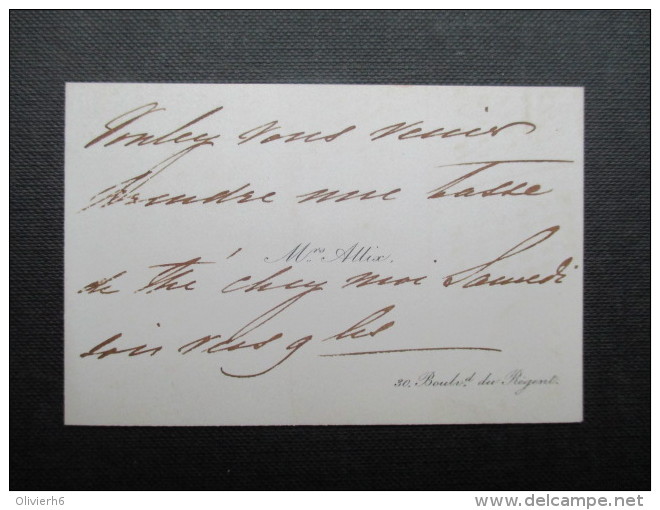 Voulez vous venir
prendre une tasse
Mrs Allix.
de thé chez moi Samedi
soir vers 9 hrs
30, Boulvd du Régent.
Olivierh6
delcampe.net